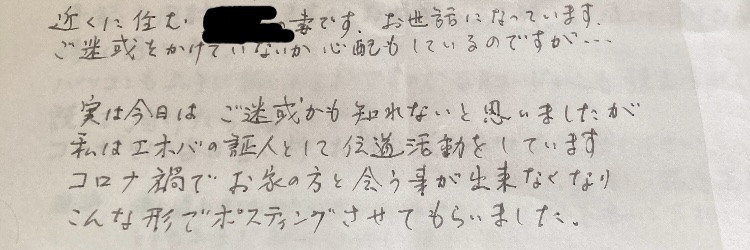 近くに住む の妻です。お世話になっています。
ご迷惑をかけていないか心配もしているのですが…
実は今日は ご迷惑かも知れないと思いましたが
私はエホバの証人として伝道活動をしています
コロナ禍でお家の方と会う事が出来なくなり
こんな形でポスティングさせてもらいました。